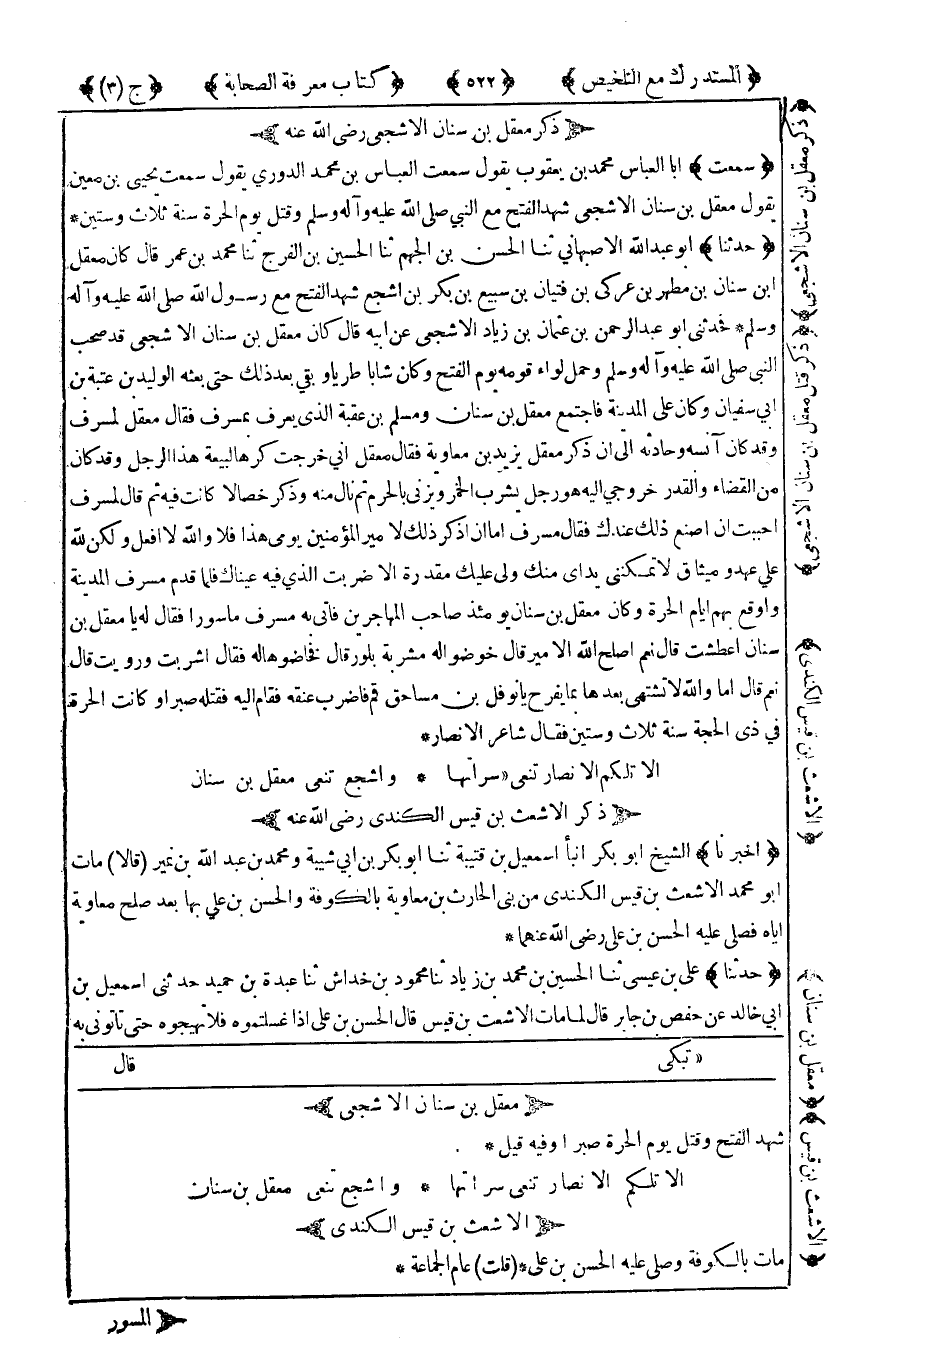 ﴿ المستدرك مع التلخيص ﴾ ﴿ ٥٢٢ ﴾ ﴿ كتاب معرفة الصحابة ﴾ ﴿ ج (٣) ﴾
ذكر معقل بن سنان الاشجعي رضى الله عنه
﴿ سمعت ﴾ ابا العباس محمد بن يعقوب يقول سمعت العباس بن محمد الدوري يقول سمعت يحيى بن معين
يقول معقل بن سنان الاشجعي شهد الفتح مع النبي صلى الله عليه وآله وسلم وقتل يوم الحرة سنة ثلاث وستين*
﴿ حدثنا ﴾ ابو عبد الله الاصبهاني ثنا الحسن بن الجهم ثنا الحسين بن الفرج ثنا محمد بن عمر قال كان معقل
ابن سنان بن مطهر بن عركى بن فتيان بن سبيع بن بكر بن اشجع شهد الفتح مع رسول الله صلى الله عليه وآله
وسلم* فحدثنى ابو عبد الرحمن بن عثمان بن زياد الاشجعى عن ابيه قال كان معقل بن سنان الاشجعى قد صحب
النبي صلى الله عليه وآله وسلم وحمل لواء قومه يوم الفتح وكان شابا طريا و بقي بعد ذلك حتى بعثه الوليد بن عتبة بن
ابي سفيان وكان على المدينة فاجتمع معقل بن سنان ومسلم بن عقبة الذى يعرف بمسرف فقال معقل لمسرف
وقد كان آنسه وحادثه الى ان ذكر معقل يزيد بن معاوية فقال معقل اني خرجت كرها لبيعة هذا الرجل وقد كان
من القضاء والقدر خروجي اليه هو رجل يشرب الخمر ويزنى بالحرم ثم نال منه وذكر خصالا كانت فيه ثم قال لمسرف
احببت ان اصنع ذلك عندك فقال مسرف اما ان اذكر ذلك لامير المؤمنين يومى هذا فلا والله لا افعل ولكن لله
علي عهد و ميثاق لا تمكنى يداى منك ولى عليك مقدرة الا ضربت الذي فيه عيناك فلما قدم مسرف المدينة
واوقع بهم ايام الحرة وكان معقل بن سنان يومئذ صاحب المهاجرين فاتى به مسرف ماسورا فقال له يا معقل بن
سنان اعطشت قال نعم اصلح الله الامير قال خوضوا له مشربة بلور قال فخاضوها له فقال اشربت ورويت قال
نعم قال اما والله لا تشتهى بعدها بما يفرح يا نوفل بن مساحق قم فاضرب عنقه فقام اليه فقتله صبرا و كانت الحرة
في ذى الحجة سنة ثلاث وستين فقال شاعر الانصار*
الا تلكم الانصار تنعى « سراتها * واشجع تنعى معقل بن سنان
ذكر الاشعث بن قيس الكندى رضى الله عنه
﴿ اخبرنا ﴾ الشيخ ابو بكر انبأ اسمعيل بن قتيبة ثنا ابو بكر بن ابي شيبة ومحمد بن عبد الله بن نمير (قالا) مات
ابو محمد الاشعث بن قيس الكندى من بنى الحارث بن معاوية بالكوفة والحسن بن علي بها بعد صلح معاوية
اياه فصلى عليه الحسن بن على رضى الله عنهما*
﴿ حدثنا ﴾ على بن عيسى ثنا الحسين بن محمد بن زياد ثنا محمود بن خداش ثنا عبدة بن حميد حدثنى اسمعيل بن
ابي خالد عن حفص بن جابر قال لما مات الاشعث بن قيس قال الحسن بن على اذا غسلتموه فلا تهيجوه حتى تأتونى به
« تبكى قال
معقل بن سنان الاشجعى
شهد الفتح وقتل يوم الحرة صبرا وفيه قيل *
الا تلكم الانصار تنعى سراتها * واشجع تنعى معقل بن سنان
الاشعث بن قيس الكندى
مات بالكوفة وصلى عليه الحسن بن على*(قلت) عام الجماعة *
المسور
﴿ ذكر معقل بن سنان الاشجعي ﴾
﴿ ذكر قتل معقل بن سنان الاشجعي ﴾
﴿ الاشعث بن قيس الكندى ﴾
﴿ معقل بن سنان ﴾
﴿ الاشعث بن قيس ﴾